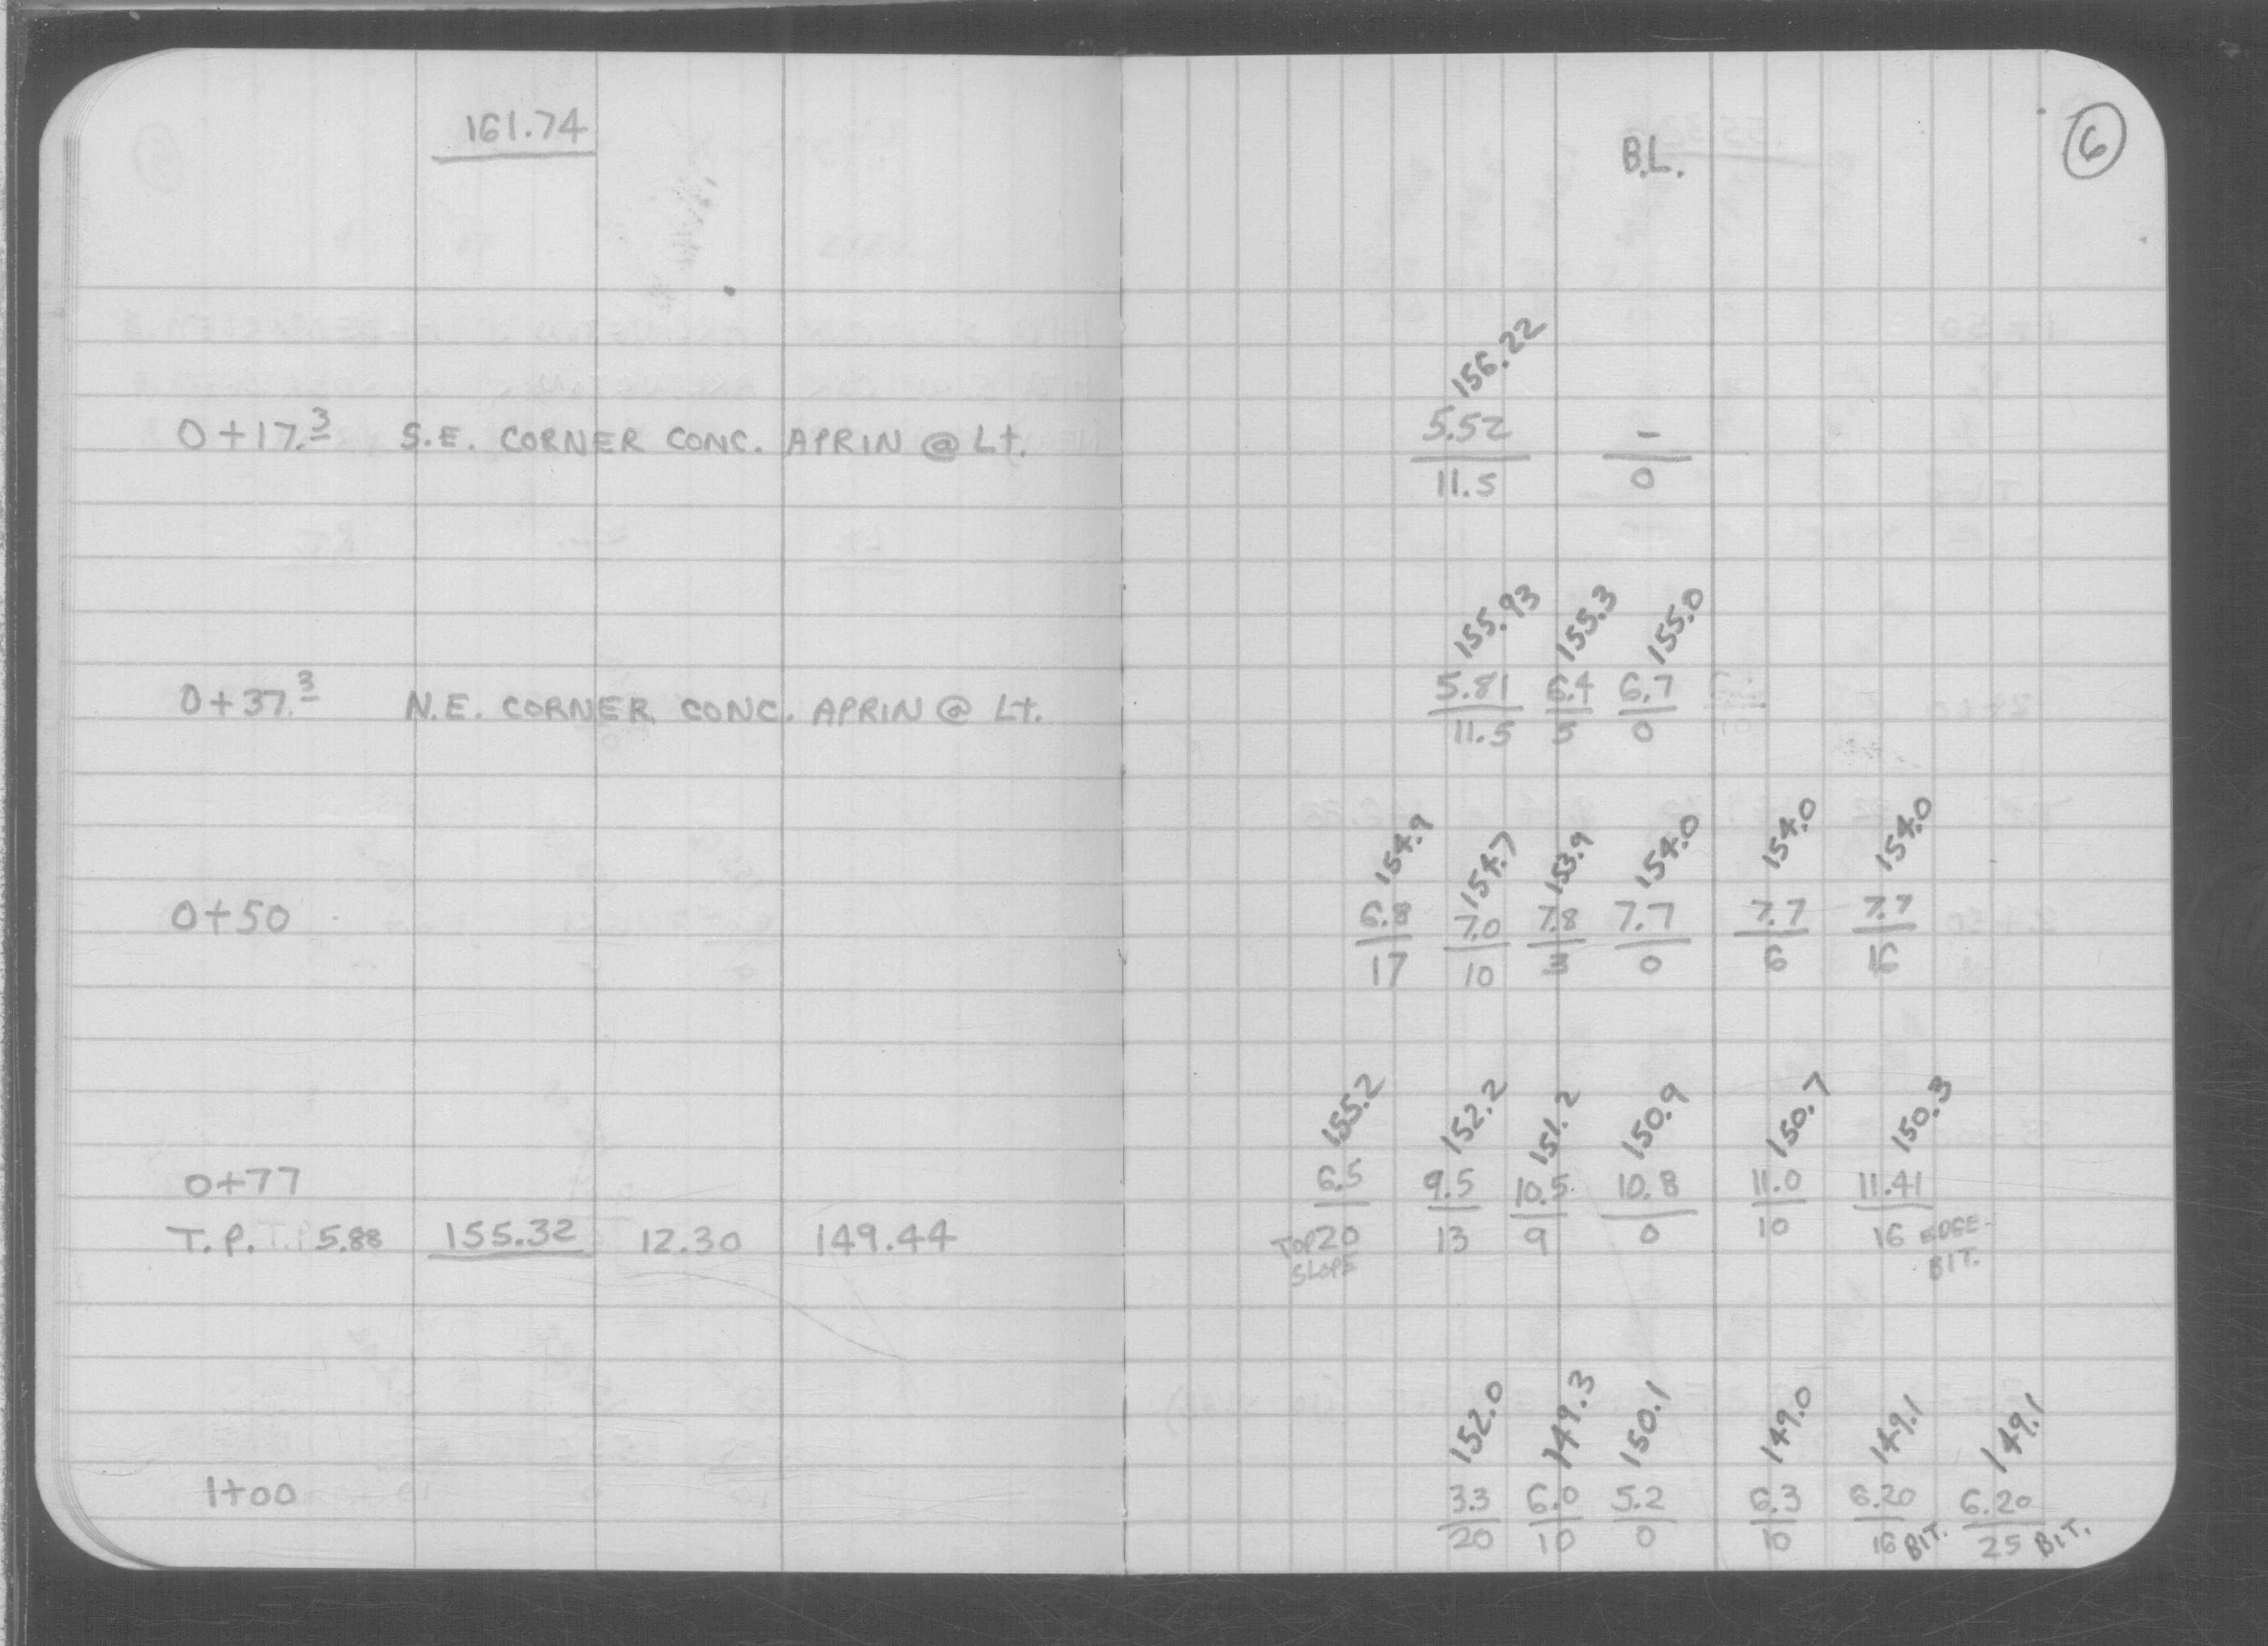 161.74
B.L.
6
156.22
0+17.3 S.E. CORNER CONC. APRIN @ Lt. 5.52 -
11.5 0
155.93 155.3 155.0
0+37.3 N.E. CORNER CONC. APRIN @ Lt. 5.81 6.4 6.7
11.5 5 0
154.9 154.7 153.9 154.0 154.0 154.0
0+50 6.8 7.0 7.8 7.7 7.7 7.7
17 10 3 0 6 16
155.2 152.2 151.2 150.9 150.7 150.3
0+77 6.5 9.5 10.5 10.8 11.0 11.41
T.P. 5.88 155.32 12.30 149.44 TOP 20 13 9 0 10 16 EDGE
SLOPE BIT.
152.0 149.3 150.1 149.0 149.1 149.1
1+00 3.3 6.0 5.2 6.3 6.20 6.20
20 10 0 10 16 BIT. 25 BIT.